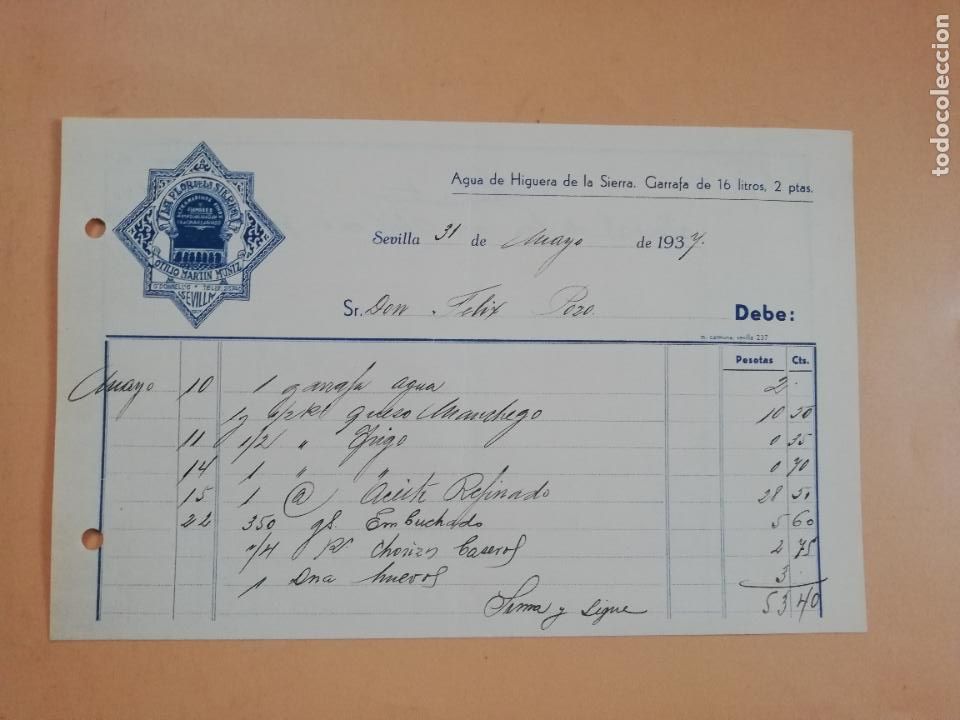 todocoleccion
LA FLOR DE LA SIERRA
OTILIO MARTIN MUÑIZ
SEVILLA
Agua de Higuera de la Sierra. Garrafa de 16 litros, 2 ptas.
Sevilla 31 de Mayo de 1937.
Sr. Don Felix Pozo. Debe:
m. carmona, sevilla 237
Pesetas Cts.
Mayo 10 1 garrafa agua 2 .
1/2 Kl queso Manchego 10 50
11 1/2 " Trigo 0 35
14 1 " 0 70
15 1 @ Aceite Refinado 28 50
22 350 gs. Embuchado 5 60
1/4 Kl Chorizos Caseros 2 75
1 Dna huevos 3 .
Suma y sigue 53 40